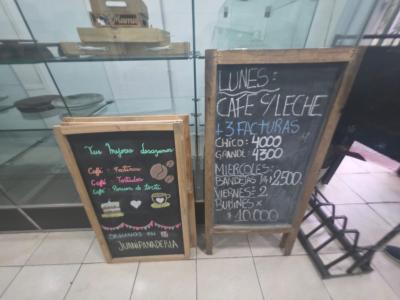 Tus Mejores desayunos
Café + Facturas
Café + Tostadas
Café + Porcion de torta
JUANIPANADERIA
LUNES:
CAFE C/LECHE
+3 FACTURAS
CHICO: 4000
GRANDE: 4300
MIERCOLES
BANDEJAS
2500
VIERNES: 2
BUDINES X
$10.000